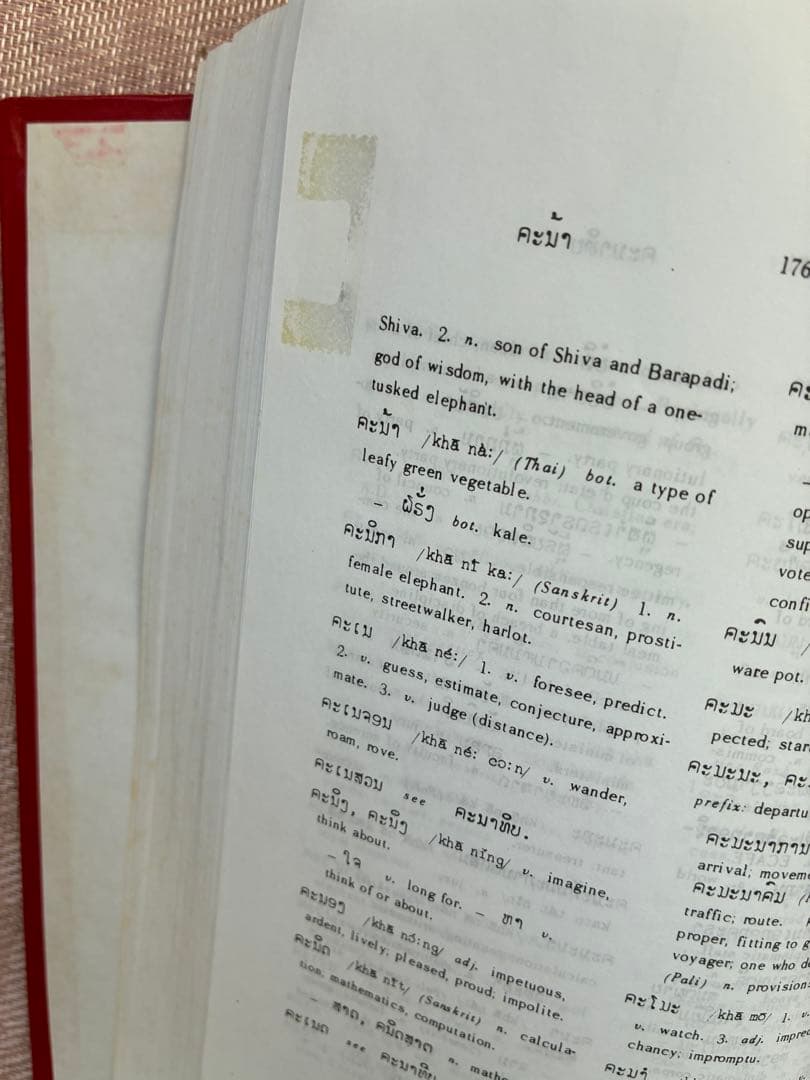 ຄະນ້າ
176
Shiva. 2. n. son of Shiva and Barapadi;
god of wisdom, with the head of a one-
tusked elephant.
ຄະນ້າ /khā nà:/ (Thai) bot. a type of
leafy green vegetable.
— ຝຣັ່ງ bot. kale.
ຄະນິກາ /khā nī ka:/ (Sanskrit) 1. n.
female elephant. 2. n. courtesan, prosti-
tute, streetwalker, harlot.
ຄະເນ /khā né:/ 1. v. foresee, predict.
2. v. guess, estimate, conjecture, approxi-
mate. 3. v. judge (distance).
ຄະເນຈອນ /khā né: cɔ:n/ v. wander,
roam, rove.
ຄະເນສວນ see ຄະນາທິບ.
ຄະນຶງ, ຄະນິງ /khā nīng/ v. imagine,
think about.
— ໃຈ v. long for. — ຫາ v.
think of or about.
ຄະນອງ /khā nɔ́:ng/ adj. impetuous,
ardent, lively; pleased, proud; impolite.
ຄະນິດ /khā nīt/ (Sanskrit) n. calcula-
tion, mathematics, computation.
— ສາດ, ຄນິດສາດ n. mathe
ຄະເນດ see ຄະນາທິບ
vote
confi
ຄະນົນ
ware pot.
ຄະມະ /kh
pected; star
ຄະມະນະ,
prefix: departu
ຄະມະນາການ
arrival; moveme
ຄະມະນາຄົມ
traffic; route.
proper, fitting to g
voyager; one who de
(Pali) n. provision
ຄະໂມະ /khā mō/ 1. v.
v. watch. 3. adj. impre
chancy; impromptu.